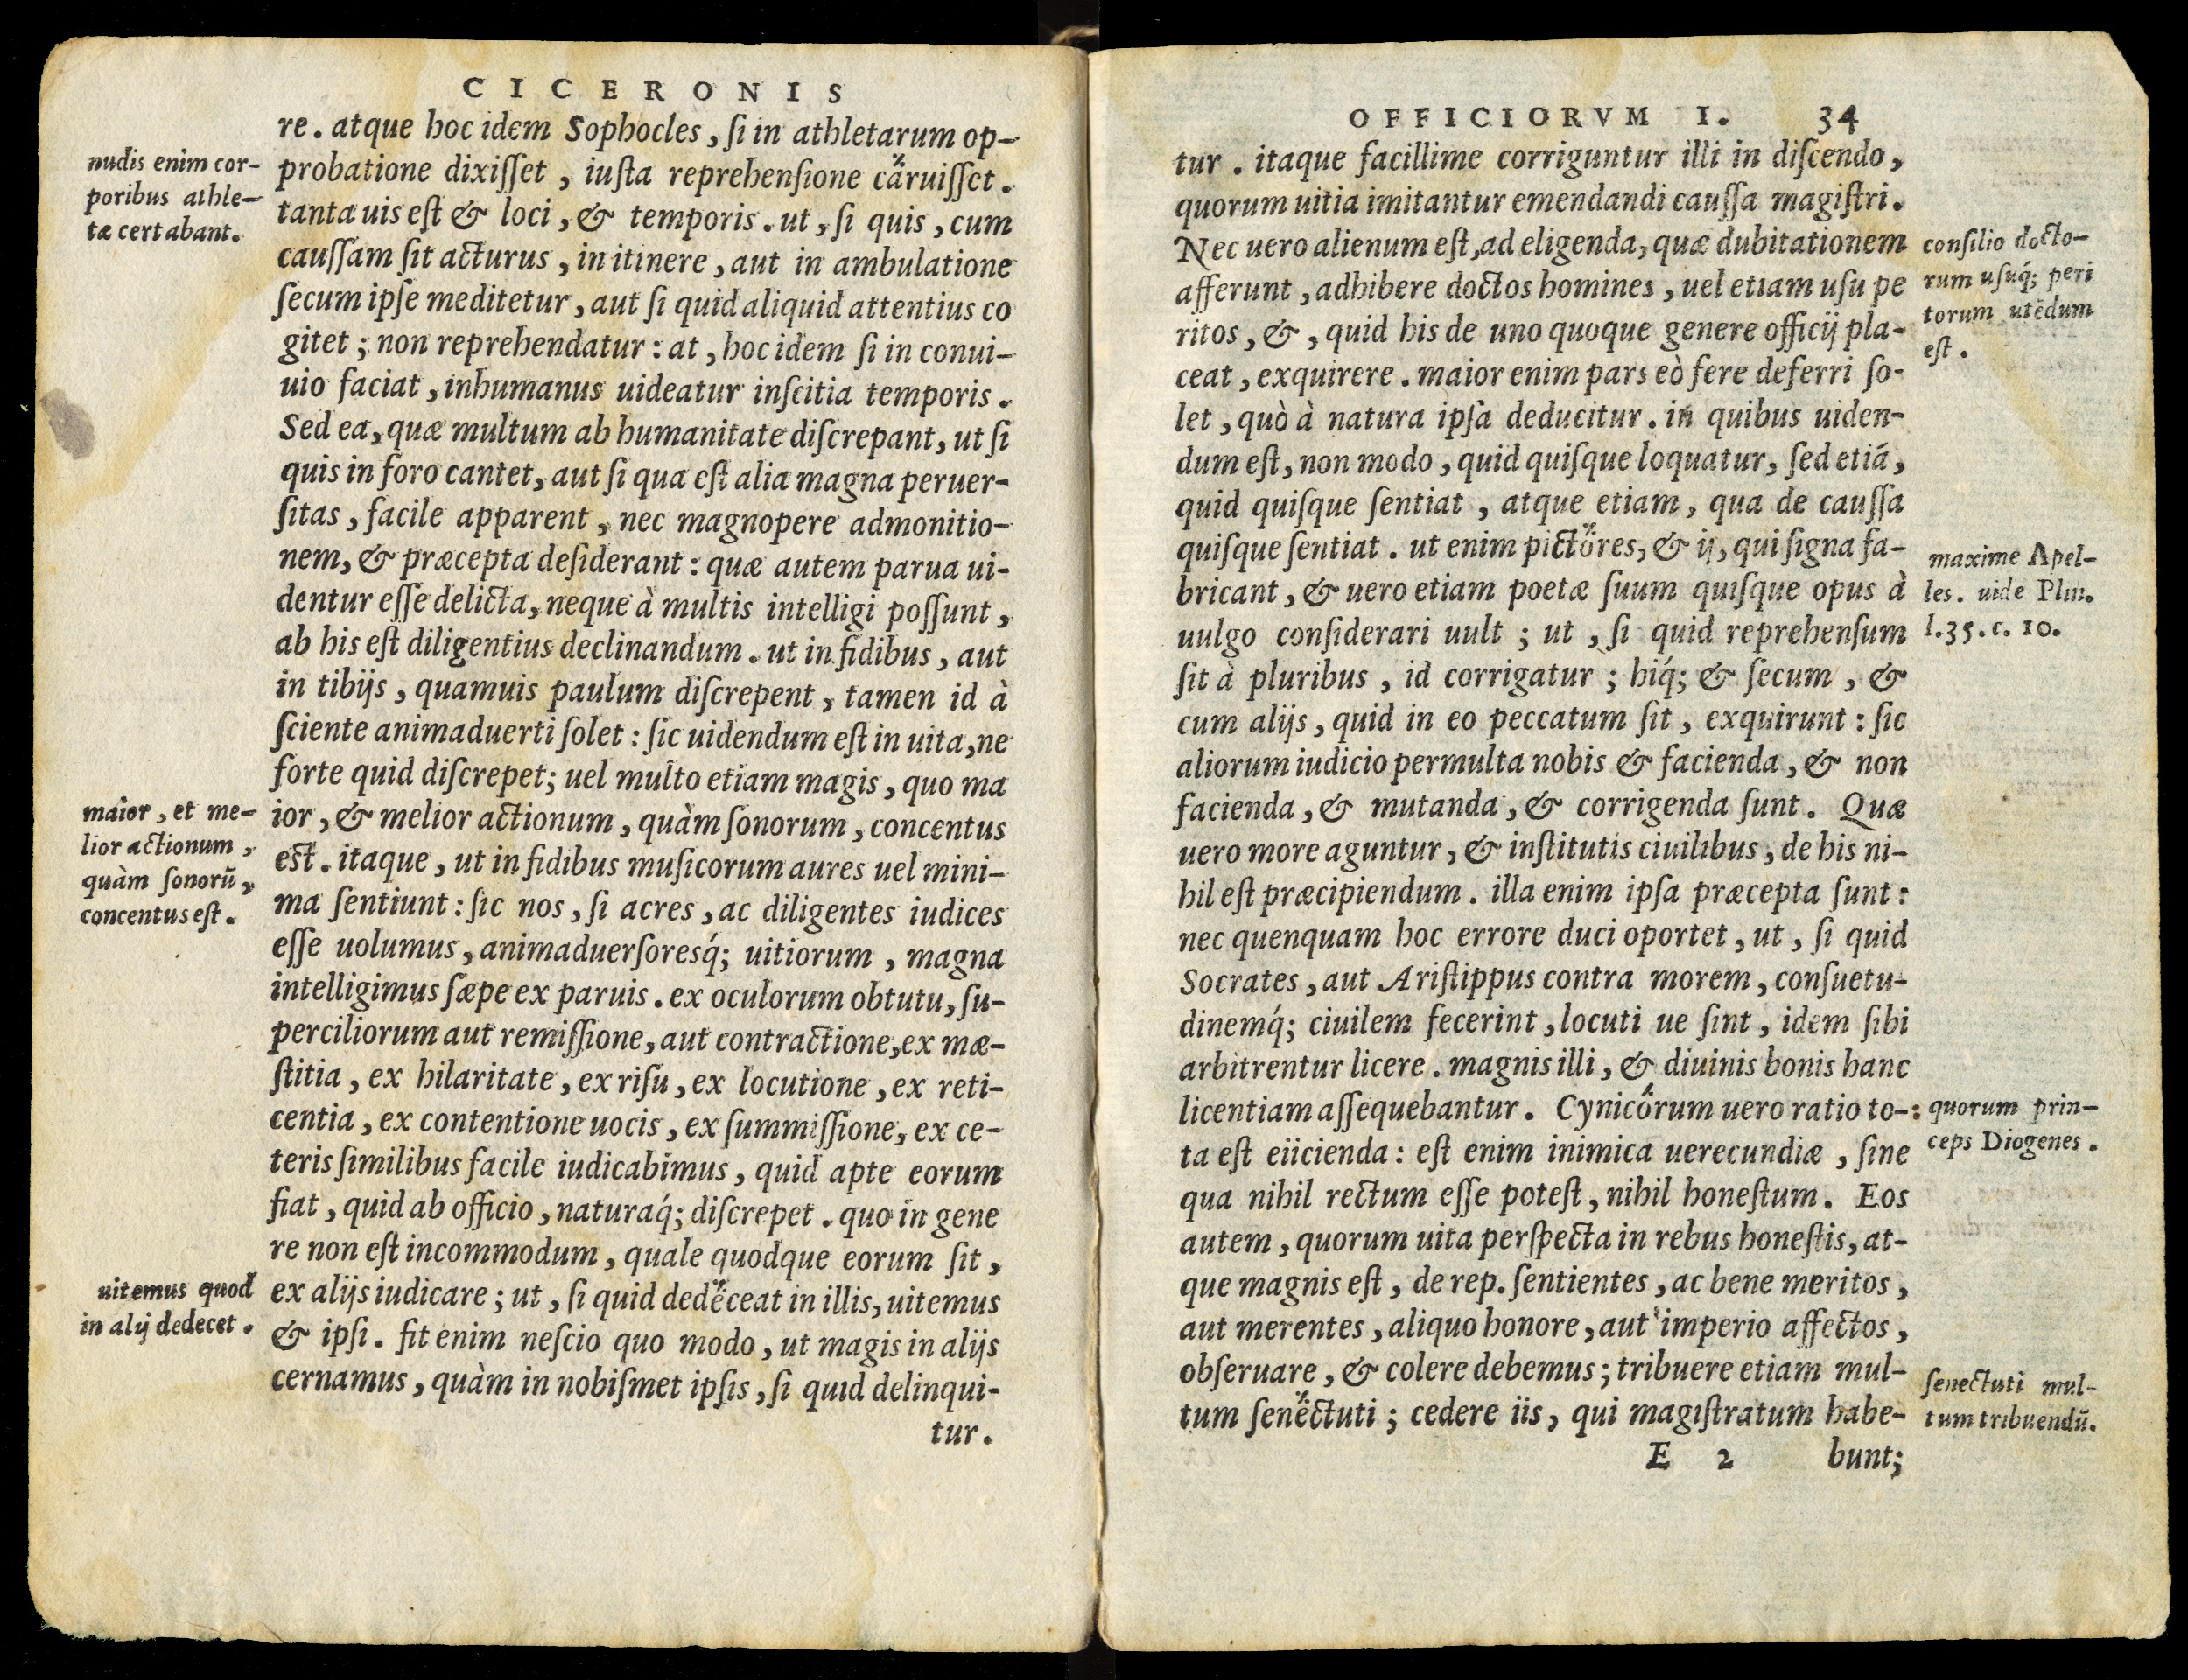 CICERONIS
re. atque hoc idem Sophocles, ſi in athletarum op-
probatione dixiſſet, iuſta reprehenſione caruiſſet.
tanta uis eſt & loci, & temporis. ut, ſi quis, cum
cauſſam ſit acturus, in itinere, aut in ambulatione
ſecum ipſe meditetur, aut ſi quid aliquid attentius co
gitet; non reprehendatur: at, hoc idem ſi in conui-
uio faciat, inhumanus uideatur inſcitia temporis.
Sed ea, quæ multum ab humanitate diſcrepant, ut ſi
quis in foro cantet, aut ſi qua eſt alia magna peruer-
ſitas, facile apparent, nec magnopere admonitio-
nem, & præcepta deſiderant: quæ autem parua ui-
dentur eſſe delicta, neque à multis intelligi poſſunt,
ab his eſt diligentius declinandum. ut in fidibus, aut
in tibijs, quamuis paulum diſcrepent, tamen id à
ſciente animaduerti ſolet: ſic uidendum eſt in uita, ne
forte quid diſcrepet; uel multo etiam magis, quo ma
ior, & melior actionum, quàm ſonorum, concentus
eſt. itaque, ut in fidibus muſicorum aures uel mini-
ma ſentiunt: ſic nos, ſi acres, ac diligentes iudices
eſſe uolumus, animaduerſoresq́; uitiorum, magna
intelligimus ſæpe ex paruis. ex oculorum obtutu, ſu-
perciliorum aut remiſſione, aut contractione, ex mæ-
ſtitia, ex hilaritate, ex riſu, ex locutione, ex reti-
centia, ex contentione uocis, ex ſummiſſione, ex ce-
teris ſimilibus facile iudicabimus, quid apte eorum
fiat, quid ab officio, naturaq́; diſcrepet. quo in gene
re non eſt incommodum, quale quodque eorum ſit,
ex alijs iudicare; ut, ſi quid dedeceat in illis, uitemus
& ipſi. fit enim neſcio quo modo, ut magis in alijs
cernamus, quàm in nobiſmet ipſis, ſi quid delinqui-
tur.
nudis enim cor-
poribus athle-
tæ certabant.
maior, et me-
lior actionum,
quàm ſonorũ,
concentus eſt.
uitemus quod
in alij dedecet.
OFFICIORVM I. 34
tur. itaque facillime corriguntur illi in diſcendo,
quorum uitia imitantur emendandi cauſſa magiſtri.
Nec uero alienum eſt, ad eligenda, quæ dubitationem
afferunt, adhibere doctos homines, uel etiam uſu pe
ritos, &, quid his de uno quoque genere officij pla-
ceat, exquirere. maior enim pars eò fere deferri ſo-
let, quò à natura ipſa deducitur. in quibus uiden-
dum eſt, non modo, quid quiſque loquatur, ſed etiã,
quid quiſque ſentiat, atque etiam, qua de cauſſa
quiſque ſentiat. ut enim pictores, & ij, qui ſigna fa-
bricant, & uero etiam poetæ ſuum quiſque opus à
uulgo conſiderari uult; ut, ſi quid reprehenſum
ſit à pluribus, id corrigatur; hiq́; & ſecum, &
cum alijs, quid in eo peccatum ſit, exquirunt: ſic
aliorum iudicio permulta nobis & facienda, & non
facienda, & mutanda, & corrigenda ſunt. Quæ
uero more aguntur, & inſtitutis ciuilibus, de his ni-
hil eſt præcipiendum. illa enim ipſa præcepta ſunt:
nec quenquam hoc errore duci oportet, ut, ſi quid
Socrates, aut Ariſtippus contra morem, conſuetu-
dinemq́; ciuilem fecerint, locuti ue ſint, idem ſibi
arbitrentur licere. magnis illi, & diuinis bonis hanc
licentiam aſſequebantur. Cynicorum uero ratio to-:
ta eſt eiicienda: eſt enim inimica uerecundiæ, ſine
qua nihil rectum eſſe poteſt, nihil honeſtum. Eos
autem, quorum uita perſpecta in rebus honeſtis, at-
que magnis eſt, de rep. ſentientes, ac bene meritos,
aut merentes, aliquo honore, aut imperio affectos,
obſeruare, & colere debemus; tribuere etiam mul-
tum ſenectuti; cedere iis, qui magiſtratum habe-
E 2 bunt;
conſilio docto-
rum uſuq́; peri
torum utẽdum
eſt.
maxime Apel-
les. uide Plin.
l.35.c.10.
quorum prin-
ceps Diogenes.
ſenectuti mul-
tum tribuendũ.